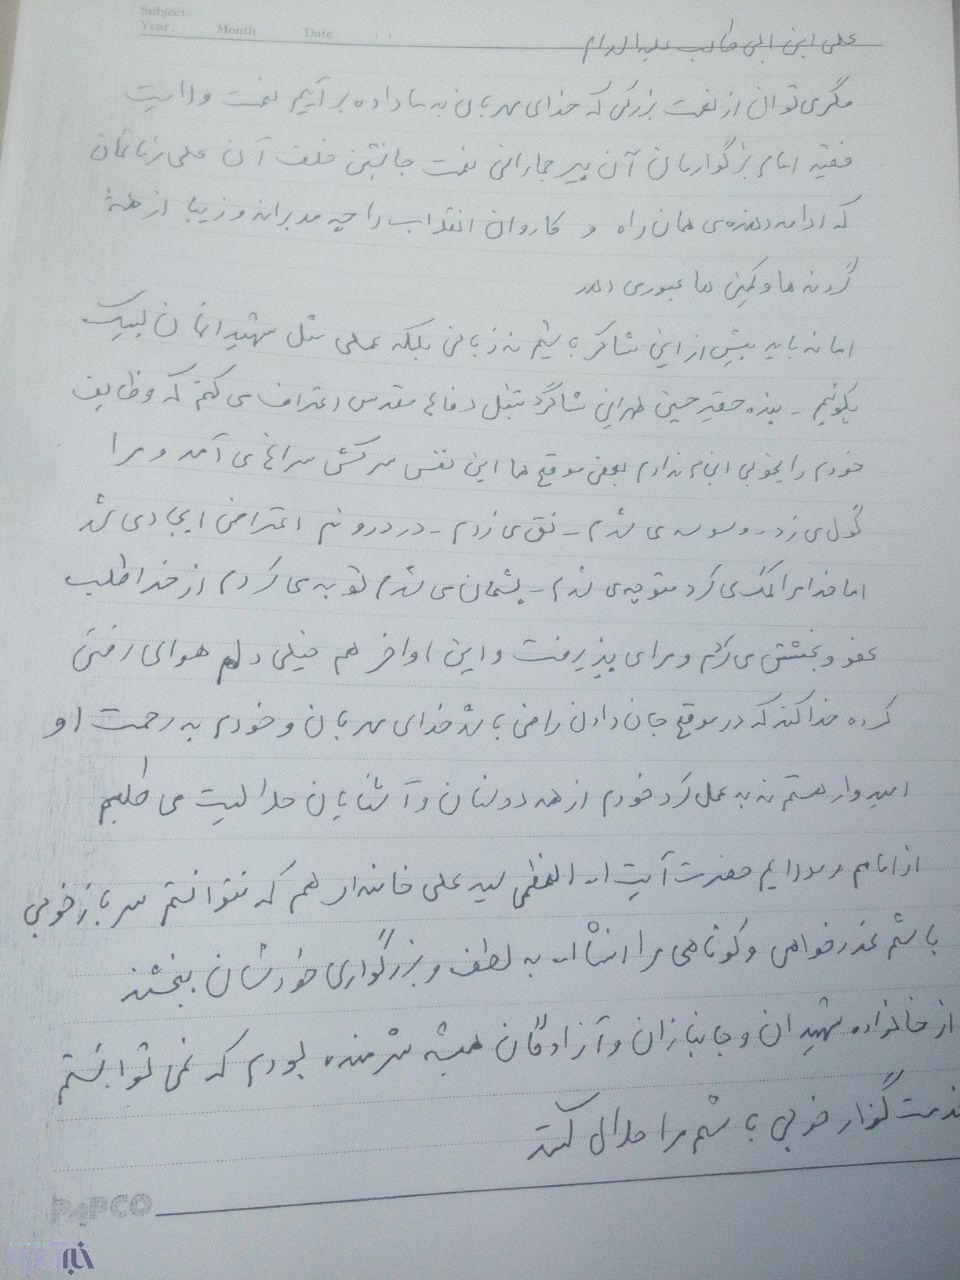 Subject.
Year. Month. Date. ( )
علی ابن ابی طالب علیه السلام
مگر می توان از نعمت بزرگی که خدای مهربان به ما داده بر آییم نعمت ولایت
فقیه امام بزرگوارمان آن پیر جمارانی نعمت جانشین خلف آن علی زمانمان
که ادامه دهنده ی همان راه و کاروان انقلاب را چه مدبرانه و زیبا از همه
گردنه ها و کمین ها عبور می دهد
اما نه باید بیش از این شاکر باشیم نه زبانی بلکه عملی مثل شهیدانمان لبیک
بگوئیم - بنده حقیر حسین طهرانی شاگرد تنبل دفاع مقدس اعتراف می کنم که وظایف
خودم را بخوبی انجام ندادم بعضی موقع ها این نفس سرکش سراغم می آمد و مرا
گول می زد - وسوسه می شدم - نق می زدم - در درونم اعتراضی ایجاد می شد
اما خدا مرا کمک می کرد متوجه می شدم - پشمان می شدم توبه می کردم از خدا طلب
عفو و بخشش می کردم و مرا می پذیرفت و این اواخر هم خیلی دلم هوای رفتن
کرده خدا کند که در موقع جان دادن راضی باشد خدای مهربان و خودم به رحمت او
امیدوار هستم نه به عمل کرد خودم از همه دوستان و آشنایان حلالیت می طلبم
از امام و مورد ایم حضرت آیت ا.. العظمی سید علی خامنه ای هم که نتوانستم سرباز خوبی
باشم عذرخواهی و کوتاهی مرا انشاا.. به لطف و بزرگواری خودشان ببخشند
از خانواده شهیدان و جانبازان و آزادگان همیشه شرمنده بودم که نمی توانستم
خدمت گزار خوبی باشم مرا حلال کنند
PAPCO
خبر